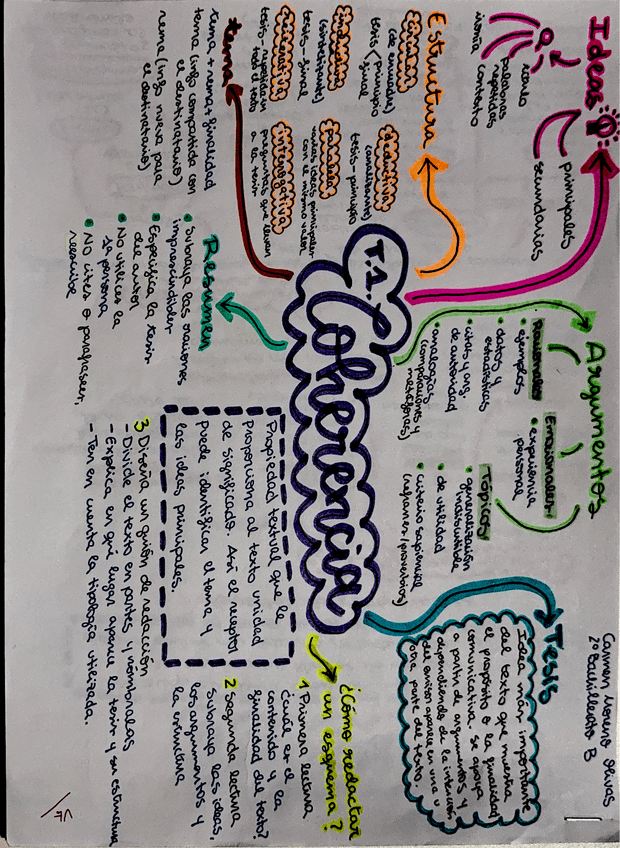 Carmen Moreno Olivas
2º Bachillerato B
T.1. Coherencia
Propiedad textual que le
proporciona al texto unidad
de significado. Así el receptor
puede identificar el tema y
las ideas principales.
Ideas
principales
secundarias
palabras
repetidas
contexto
Estructura
tesis-principio
tesis-final
tesis-repetida en
todo el texto
varias ideas principales
con el mismo valor
preguntas que llevan
a la tesis
tema
tema + rema + finalidad
tema (info compartida con
el destinatario)
rema (info nueva para
el destinatario)
Resumen
• Subraya las oraciones
imprescindibles
• Especifica la tesis
del autor
• No utilices la
1a persona
• No cites o parafrasees,
reescribe
Argumentos
Racionales
• ejemplos
• datos y
estadísticas
• citas y arg.
de autoridad
• analogías
(comparaciones y
metáforas)
Emocionales
• experiencia
personal
Tópicos
• generalización
indiscutible
• de utilidad
• criterio sapiencial
(refranes/proverbios)
Tesis
Idea más importante
del texto que muestra
el propósito o la finalidad
comunicativa. Se apoya
a partir de argumentos y
dependiendo de la intención
del emisor aparece en una u
otra parte del texto
¿Cómo redactar
un esquema?
1 Primera lectura
¿Cuál es el
contenido y la
finalidad del texto?
2 Segunda lectura
Subraya las ideas,
los argumentos y
la estructura
3 Diseña un guión de redacción
- Divide el texto en partes y nómbralas
- Explica en qué lugar aparece la tesis y su estructura
- Ten en cuenta la tipología utilizada.